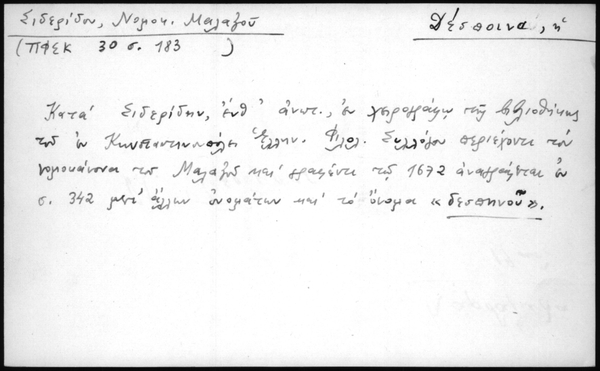 Σιδερίδου, Νομοκ. Μαλαξοῦ
Δέσποινα, ἡ
(ΠΦΣΚ 30 σ. 183 )
Κατά Σιδερίδην, ἐνθ' ἀνωτ., ἐν χειρογράφῳ τῆς βιβλιοθήκης
τοῦ ἐν Κωνσταντινουπόλει Ἑλλην. Φιλολ. Συλλόγου περιέχοντι τόν
νομοκάνονα τοῦ Μαλαξοῦ καί γραφέντι τῷ 1672 ἀναγράφεται ἐν
σ. 342 μετ' ἄλλων ὀνομάτων καί τό ὄνομα «δεσπηνοῦ».